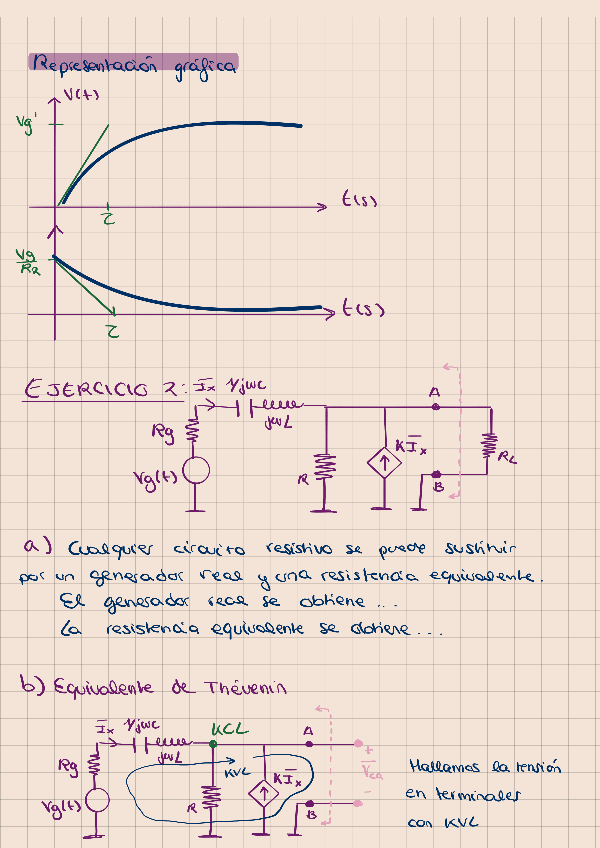 Representación gráfica
V(t)
Vg'
t(s)
τ
Vg/R2
t(s)
τ
EJERCICIO 2: Ix 1/jwc
jwL
Rg
Vg(t)
R
KIx
A
B
RL
a) Cualquier circuito resistivo se puede sustituir
por un generador real y una resistencia equivalente.
El generador real se obtiene...
La resistencia equivalente se obtiene...
b) Equivalente de Thévenin
Ix 1/jwc
jwL
KCL
A
Rg
KVL
Vg(t)
R
KIx
B
+
Vca
-
Hallamos la tensión
en terminales
con KVL